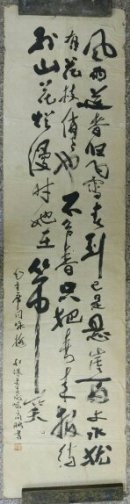 风雨送春归飞雪迎春到已是悬崖百丈冰犹
有花枝俏俏也不争春只把春来报待
到山花烂漫时她在丛中笑
毛主席词咏梅